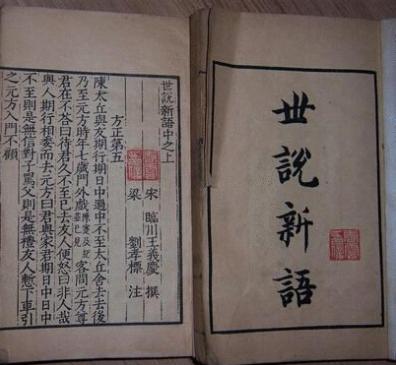 世說新語
世說新語中之上
宋 臨川王義慶 撰
梁 劉孝標 注
方正第五
陳太丘與友期行期日中過中不至太丘舍去去後
乃至元方時年七歲門外戲陳寔及紀並已見客問元方尊
君在不荅曰待君久不至已去友人便怒曰非人哉
與人期行相委而去元方曰君與家君期日中日中
不至則是無信對子罵父則是無禮友人慙下車引
之元方入門不顧